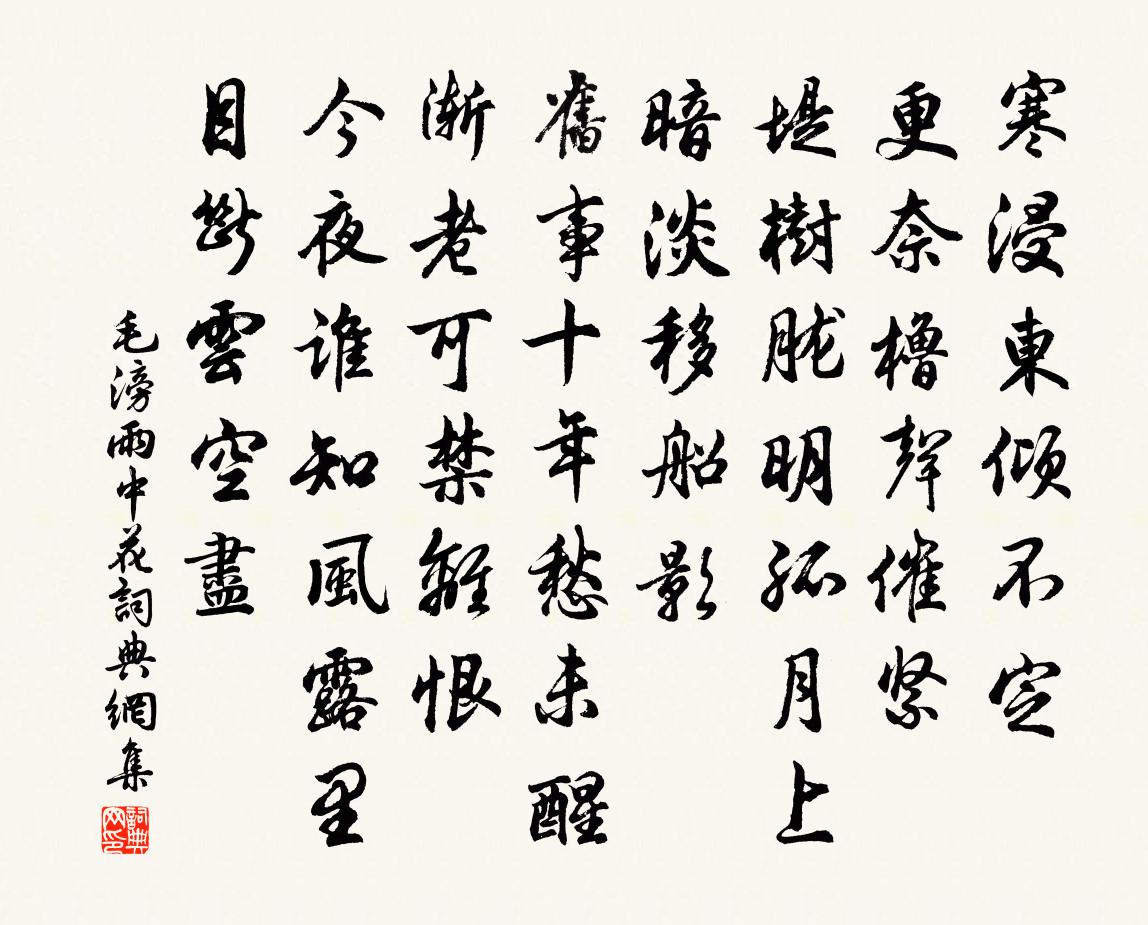 寒浸東傾不定
更奈櫓聲催緊
堤樹朧明孤月上
暗淡移船影
舊事十年愁未醒
漸老可禁離恨
今夜誰知風露里
目斷雲空盡
毛滂雨中花詞典網集
詞典網印